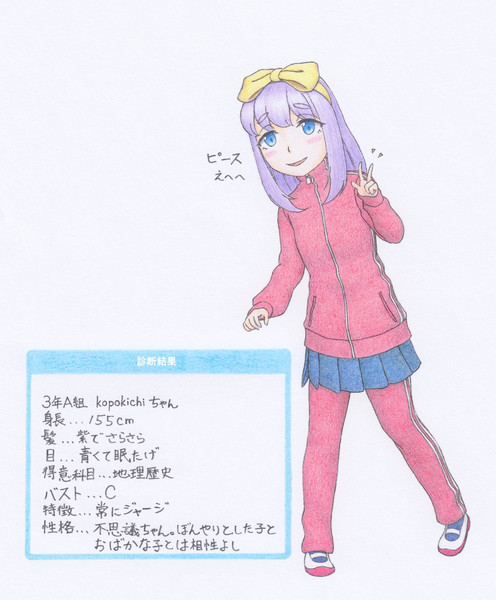 ピース
えへへ
診断結果
3年A組 kopokichiちゃん
身長...155cm
髪...紫でさらさら
目...青くて眠たげ
得意科目...地理歴史
バスト...C
特徴...常にジャージ
性格...不思議ちゃん。ぼんやりとした子と
おばかな子とは相性よし